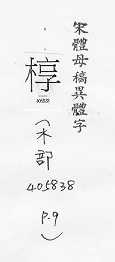 宋體母稿異體字
椁
(木部
405838
P.9)